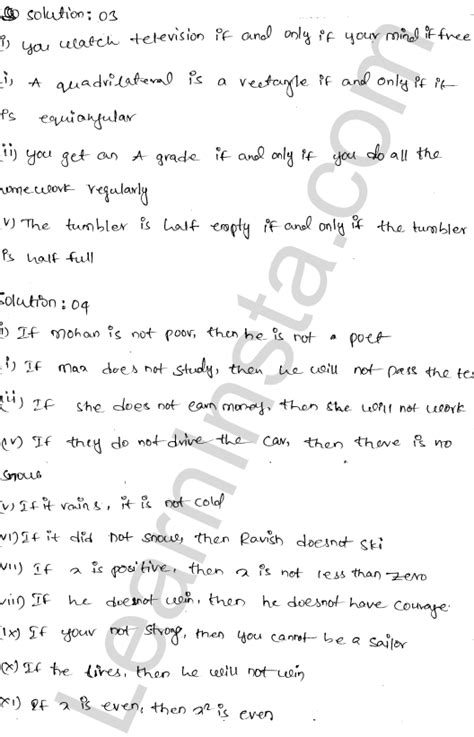 Solution: 03
i) you watch television if and only if your mind if free
i) A quadrilateral is a rectangle if and only if it
is equiangular
ii) you get an A grade if and only if you do all the
homework regularly
v) The tumbler is half empty if and only if the tumbler
is half full
Solution: 04
i) If Mohan is not poor, then he is not a poet
i) If max does not study, then he will not pass the tes
iii) If she does not earn money, then she will not work
(v) If they do not drive the car, then there is no
snow
(v) If it rains, it is not cold
vi) If it did not snow, then Ravish doesnot ski
vii) If x is positive, then x is not less than zero
viii) If he doesnot win, then he doesnot have courage.
(ix) If your not strong, then you cannot be a sailor
(x) If he tires, then he will not win
xi) If x is even, then x² is even
LearnInsta.com